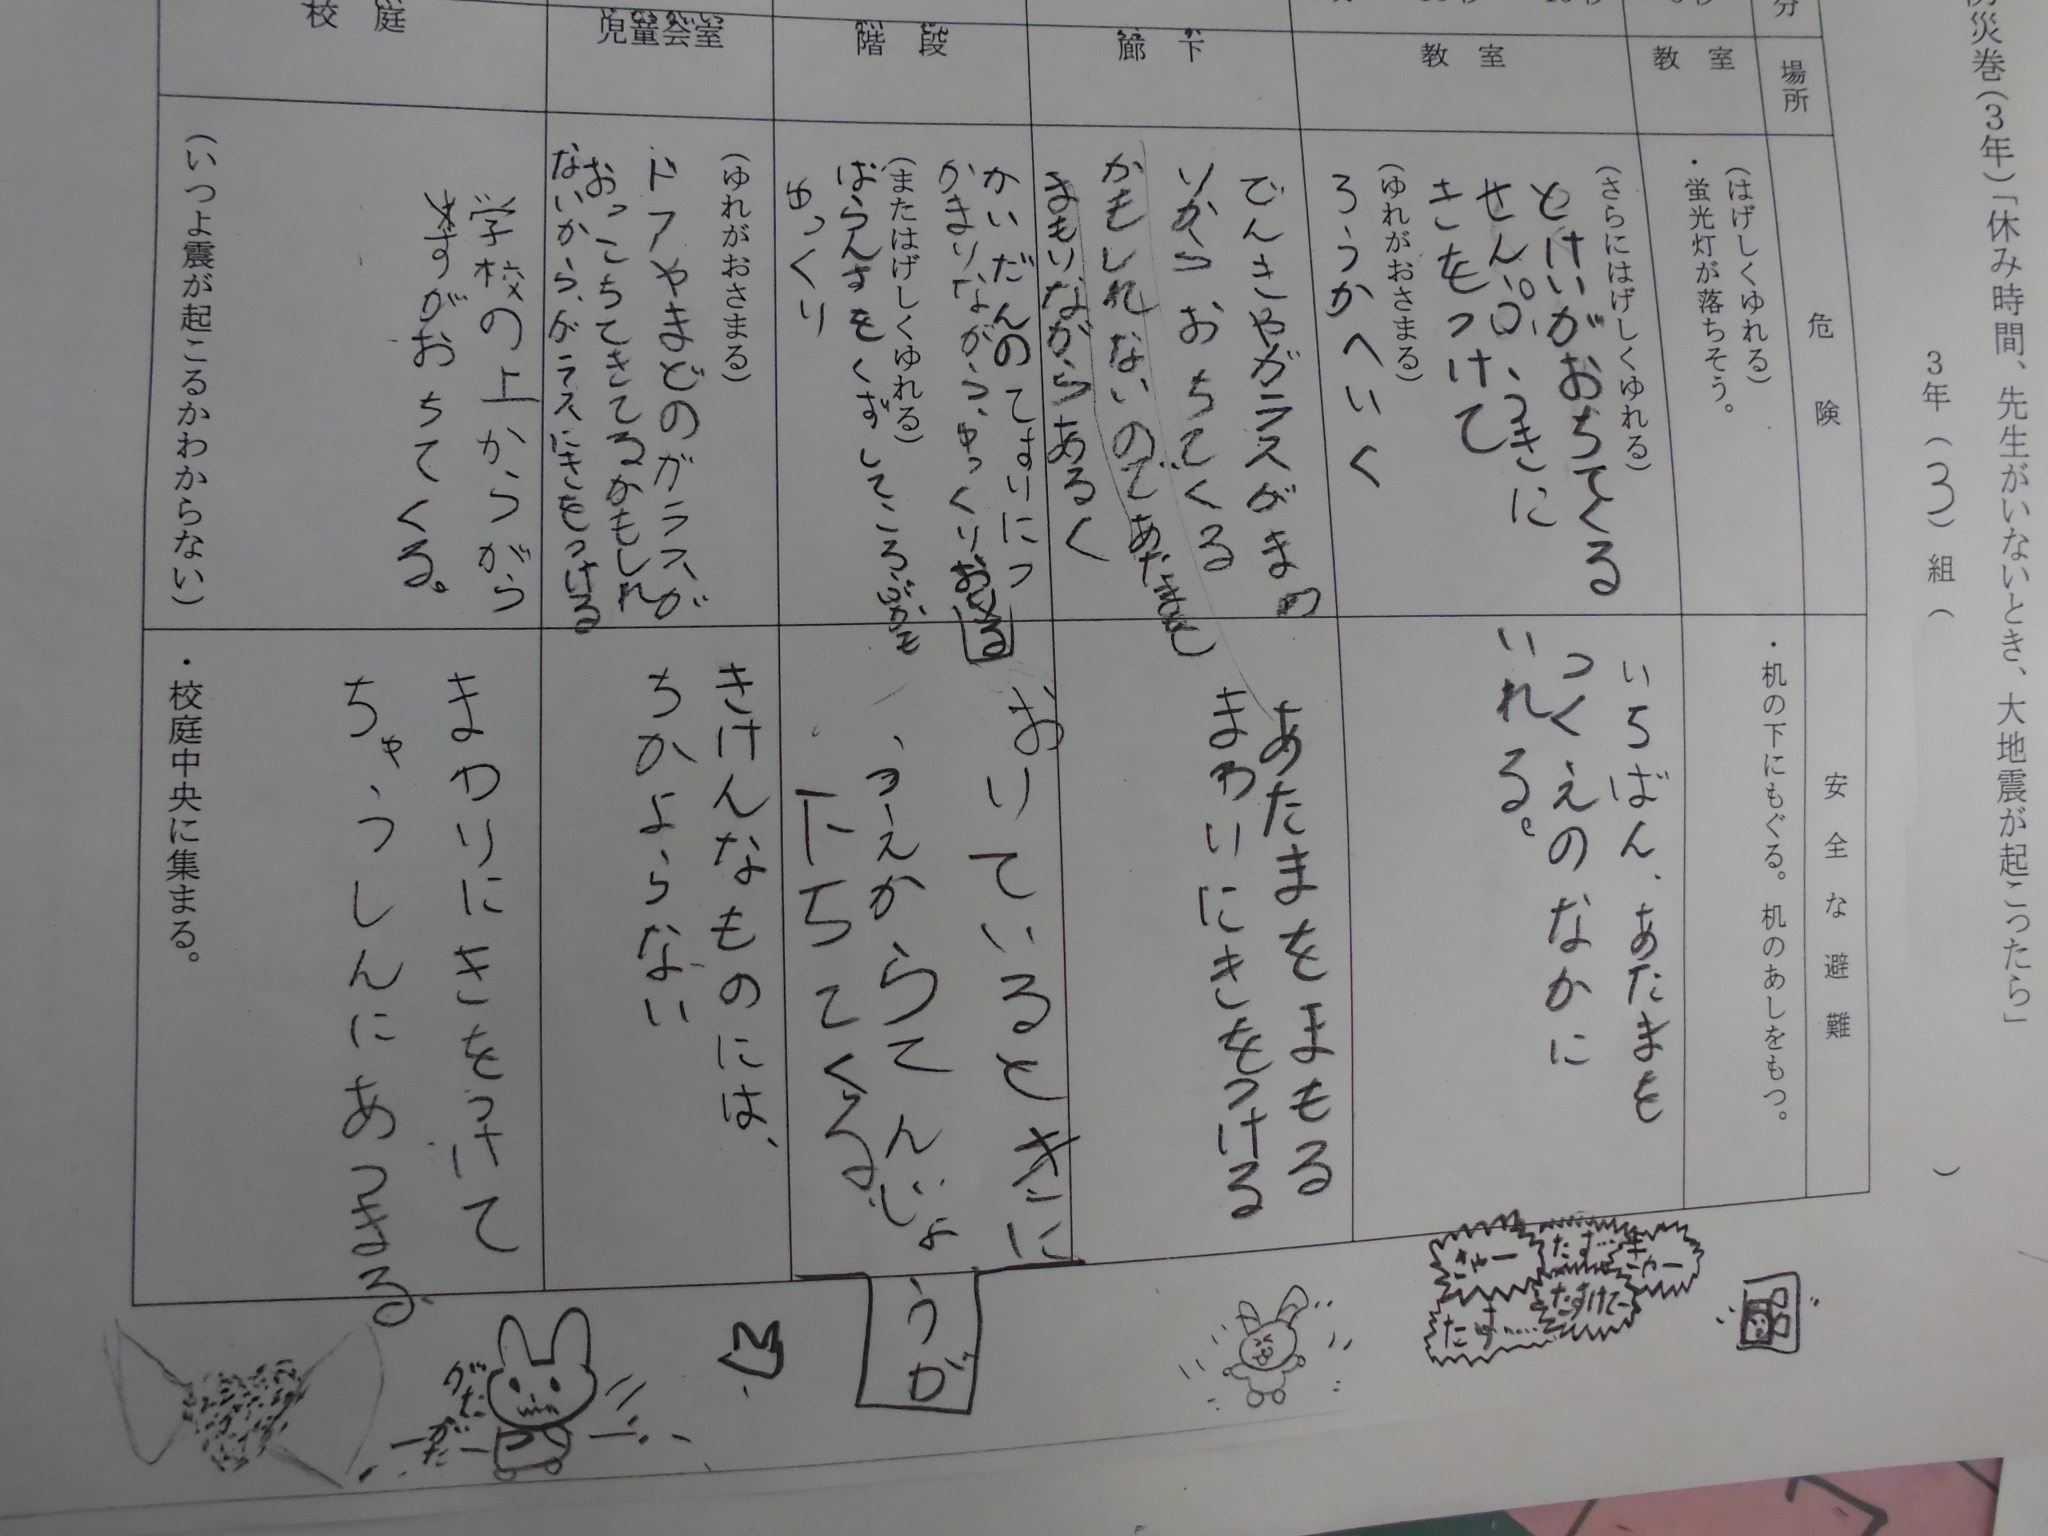 防災巻(3年)「休み時間、先生がいないとき、大地震が起こったら」
3年(3)組( )
分
場所
危険
安全な避難
教室
(はげしくゆれる)
・蛍光灯が落ちそう。
・机の下にもぐる。机のあしをもつ。
教室
(さらにはげしくゆれる)
とけいがおちてくる
せんぷうきに
きをつけて
(ゆれがおさまる)
ろうかへいく
いちばん、あたまを
つくえのなかに
いれる。
廊下
でんきやガラスがまわ
りからおちてくる
かもしれないのであたまを
まもりながらあるく
あたまをまもる
まわりにきをつける
階段
かいだんのてすりにつ
かまりながら、ゆっくりおりる
(またはげしくゆれる)
ばらんすをくずしてころぶかも
ゆっくり
おりているときに
、うえからてんじょ
うが
下ちてくる
児童会室
(ゆれがおさまる)
ドアやまどのガラスが
おっこちてきてるかもしれ
ないから、ガラスにきをつける
きけんなものには、
ちかよらない
校庭
学校の上からがら
すがおちてくる。
(いつよ震が起こるかわからない)
まわりにきをつけて
ちゅうしんにあつまる
・校庭中央に集まる。
きゃー
たす…
きゃー
たすけてー
たす……
ガた
ーがたー